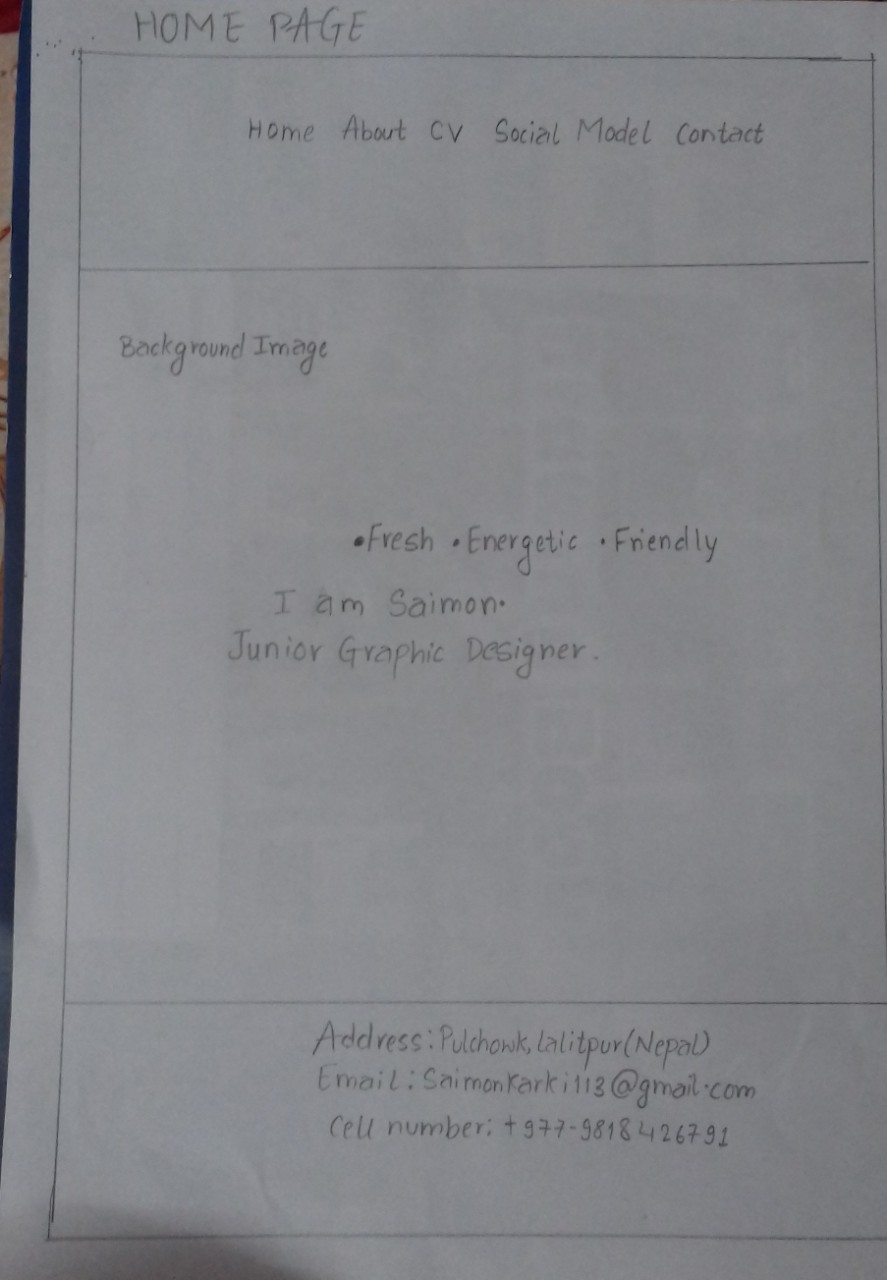 HOME PAGE
Home About CV Social Model Contact
Background Image
•Fresh •Energetic •Friendly
I am Saimon.
Junior Graphic Designer.
Address: Pulchowk, Lalitpur (Nepal)
Email: Saimonkarki113@gmail.com
Cell number: +977-9818426791